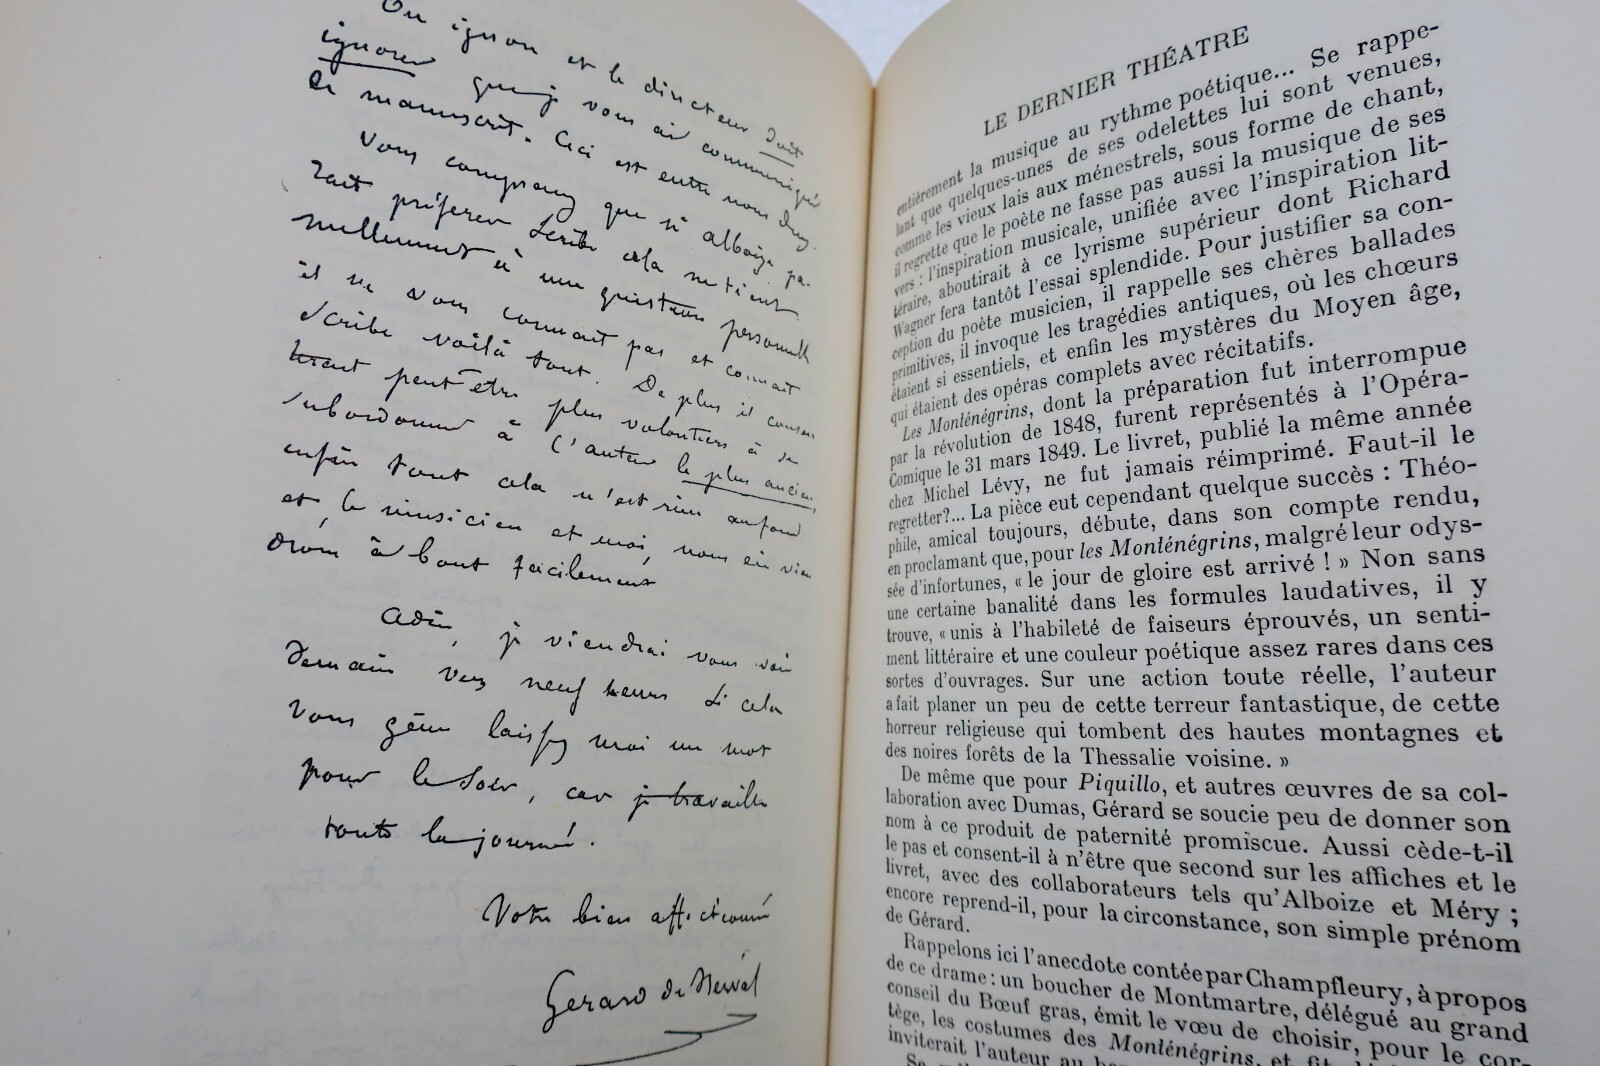 On ignore et le directeur doit
ignorer que je vous ai communiqué
le manuscrit. Ceci est entre nous deux.
Vous comprenez que si Alboize pa-
rait préférer Scribe cela ne tient
nullement à une question personnelle
il ne vous connait pas et connait
Scribe voilà tout. De plus il
peut être plus volontiers à se
subordonner à l'auteur le plus ancien,
enfin tout cela n'est rien au fond
et, le musicien et moi, nous en vien
drons à bout facilement
Adieu, je viendrai vous voir
demain vers neuf heures si cela
vous gêne laissez moi un mot
pour le soir, car je travaille
toute la journée.
Votre bien affectionné
Gérard de Nerval
LE DERNIER THÉATRE
entièrement la musique au rythme poétique... Se rappe-
lant que quelques-unes de ses odelettes lui sont venues,
comme les vieux lais aux ménestrels, sous forme de chant,
il regrette que le poète ne fasse pas aussi la musique de ses
vers : l'inspiration musicale, unifiée avec l'inspiration lit-
téraire, aboutirait à ce lyrisme supérieur dont Richard
Wagner fera tantôt l'essai splendide. Pour justifier sa con-
ception du poète musicien, il rappelle ses chères ballades
primitives, il invoque les tragédies antiques, où les chœurs
étaient si essentiels, et enfin les mystères du Moyen âge,
qui étaient des opéras complets avec récitatifs.
Les Monténégrins, dont la préparation fut interrompue
par la révolution de 1848, furent représentés à l'Opéra-
Comique le 31 mars 1849. Le livret, publié la même année
chez Michel Lévy, ne fut jamais réimprimé. Faut-il le
regretter?... La pièce eut cependant quelque succès : Théo-
phile, amical toujours, débute, dans son compte rendu,
en proclamant que, pour les Monténégrins, malgré leur odys-
sée d'infortunes, « le jour de gloire est arrivé ! » Non sans
une certaine banalité dans les formules laudatives, il y
trouve, « unis à l'habileté de faiseurs éprouvés, un senti-
ment littéraire et une couleur poétique assez rares dans ces
sortes d'ouvrages. Sur une action toute réelle, l'auteur
a fait planer un peu de cette terreur fantastique, de cette
horreur religieuse qui tombent des hautes montagnes et
des noires forêts de la Thessalie voisine. »
De même que pour Piquillo, et autres œuvres de sa col-
laboration avec Dumas, Gérard se soucie peu de donner son
nom à ce produit de paternité promiscue. Aussi cède-t-il
le pas et consent-il à n'être que second sur les affiches et le
livret, avec des collaborateurs tels qu'Alboize et Méry ;
encore reprend-il, pour la circonstance, son simple prénom
de Gérard.
Rappelons ici l'anecdote contée par Champfleury, à propos
de ce drame : un boucher de Montmartre, délégué au grand
conseil du Bœuf gras, émit le vœu de choisir, pour le cor-
tège, les costumes des Monténégrins, et fit
inviterait l'auteur au